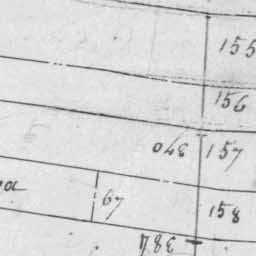 155
156
340 157
a 67 158
387